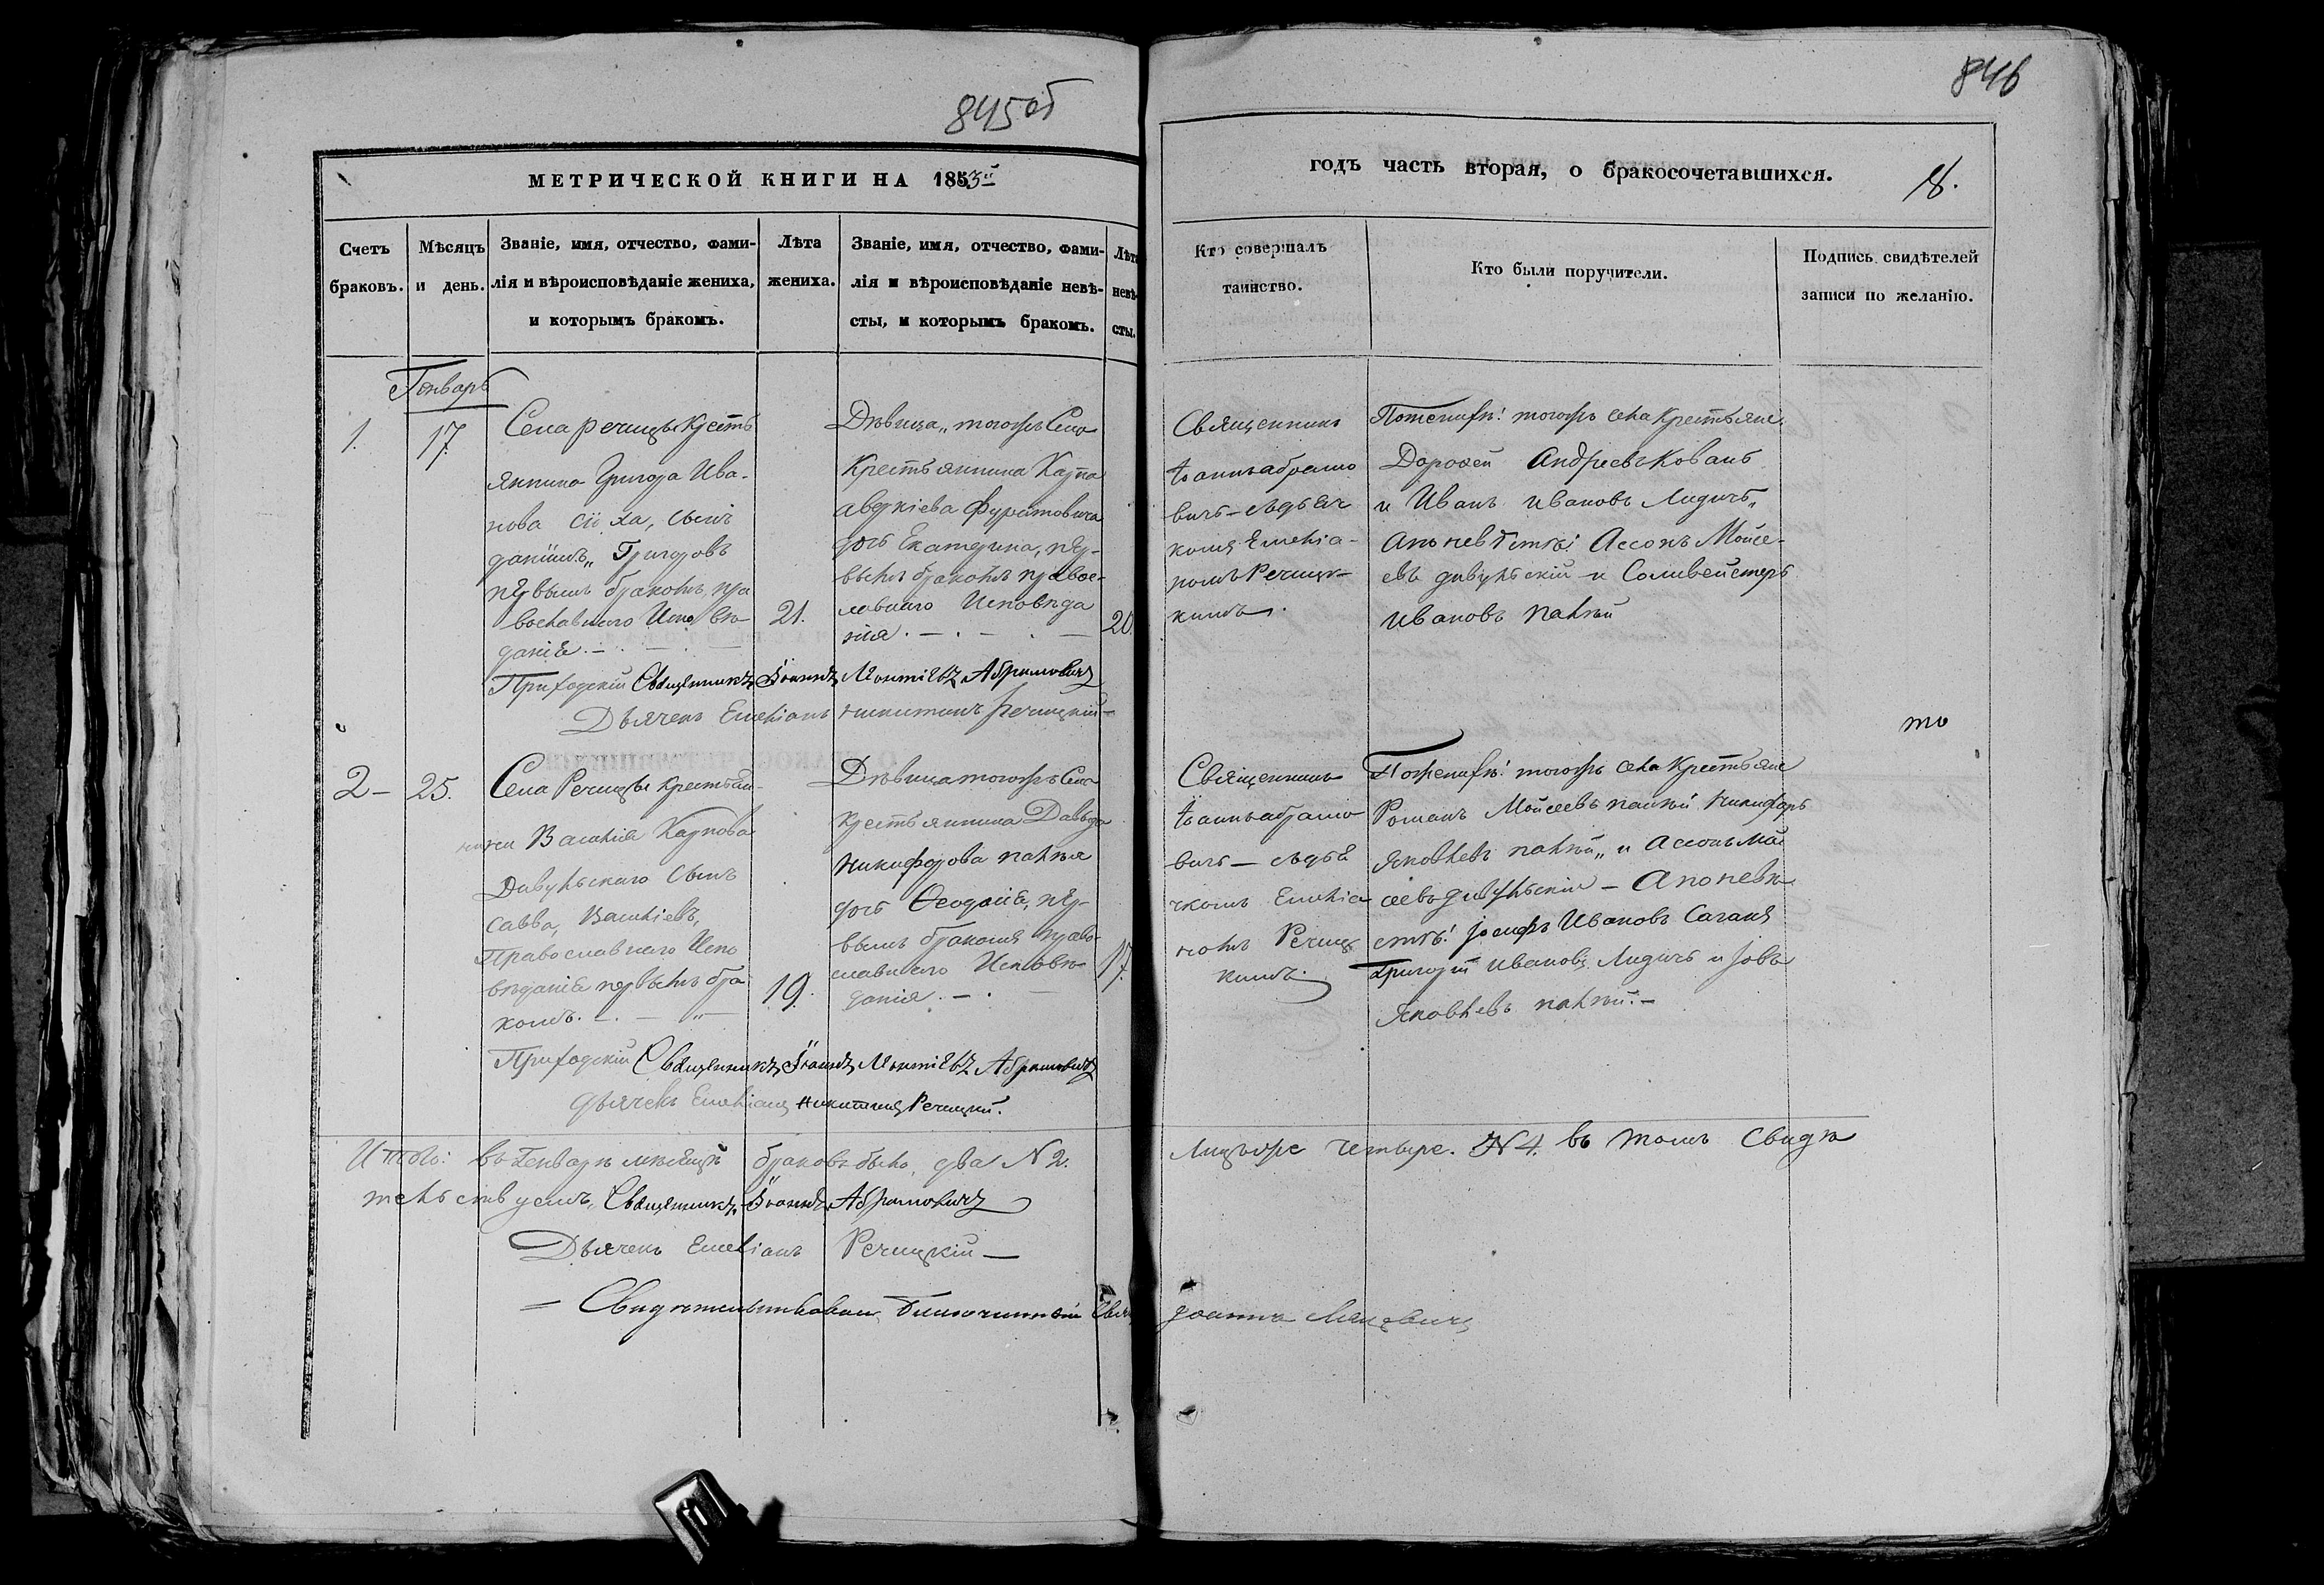 845об
846
МЕТРИЧЕСКОЙ КНИГИ НА 1853й
годъ часть вторая, о бракосочетавшихся.
8.
Счетъ браковъ.
Мѣсяцъ и день.
Званіе, имя, отчество, фами-
лія и вѣроисповѣданіе жениха,
и которымъ бракомъ.
Лѣта жениха.
Званіе, имя, отчество, фами-
лія и вѣроисповѣданіе невѣ-
сты, и которымъ бракомъ.
Лѣта невѣ-
сты.
Кто совершалъ
таинство.
Кто были поручители.
Подпись свидѣтелей
записи по желанію.
Генварь
1.
17.
Села речицы Кресть
янина Григора Ива-
нова сына
Григоровъ
первымъ бракомъ, пра
вославнаго Исповѣ-
даніе. —
21.
Дѣвица „ тогожъ Села
Крестьянина Карпа
авдкіева
дочь Екатерина, пер-
вымъ бракомъ правос-
лавнаго Исповѣда
нія. —
20.
Священникъ
Іоаннъ абрамо
вичъ — съ дьяч
комъ Емеліа-
номъ Речиц-
кимъ.
По женихѣ: тогожъ села крестьяне
Дорофей Андреевъ Ковань
и Иванъ ивановъ Лидичъ „
а по невѣстѣ: Ассонъ Мойсе-
евъ дивульскій и Соливейстеръ
ивановъ палѣй
Приходскій Священникъ Іоаннъ Абрамовичъ
Дьячекъ Емеліанъ никитинъ Речицкій
то
2 —
25.
Села Речицы крестьян-
Василія Карпова
Дивульскаго Сынъ
Савва, Василіевъ,
Православнаго Испо
вѣданіе первымъ бра
комъ. —
19.
Дѣвица тогожъ Села
крестьянина Давыда
никифорова палѣя
дочь Ѳеодосіе, пер-
вымъ бракомъ право-
славнаго Исповѣ-
данія. —
17.
Священникъ
Іоаннъ абрамо
вичъ — съ дья
чкомъ Емеліа
номъ Речиц
кимъ.
По женихѣ: тогожъ села Крестьяне
Романъ Мойсеевъ палѣй никифоръ
Яковлевъ палѣй „ и Ассонъ Мой
сеевъ дивульскій — А по невѣ
стѣ: іосифъ Ивановъ Саганъ
Григорій ивановъ Лидичъ и Іовъ
Яковлевъ палѣй. —
Приходскій Священникъ Іоаннъ Абрамовичъ
дьячекъ Емеліанъ никитинъ Речицкій.
Итого: въ Генварѣ мѣсяцѣ браковъ было, два N 2.
Лицъ же четыре. N 4. въ томъ Свидѣ
тельствуемъ, Священникъ Іоаннъ Абрамовичъ
Дьячекъ Емеліанъ Речицкій —
Свидѣтельствовалъ, Благочинный